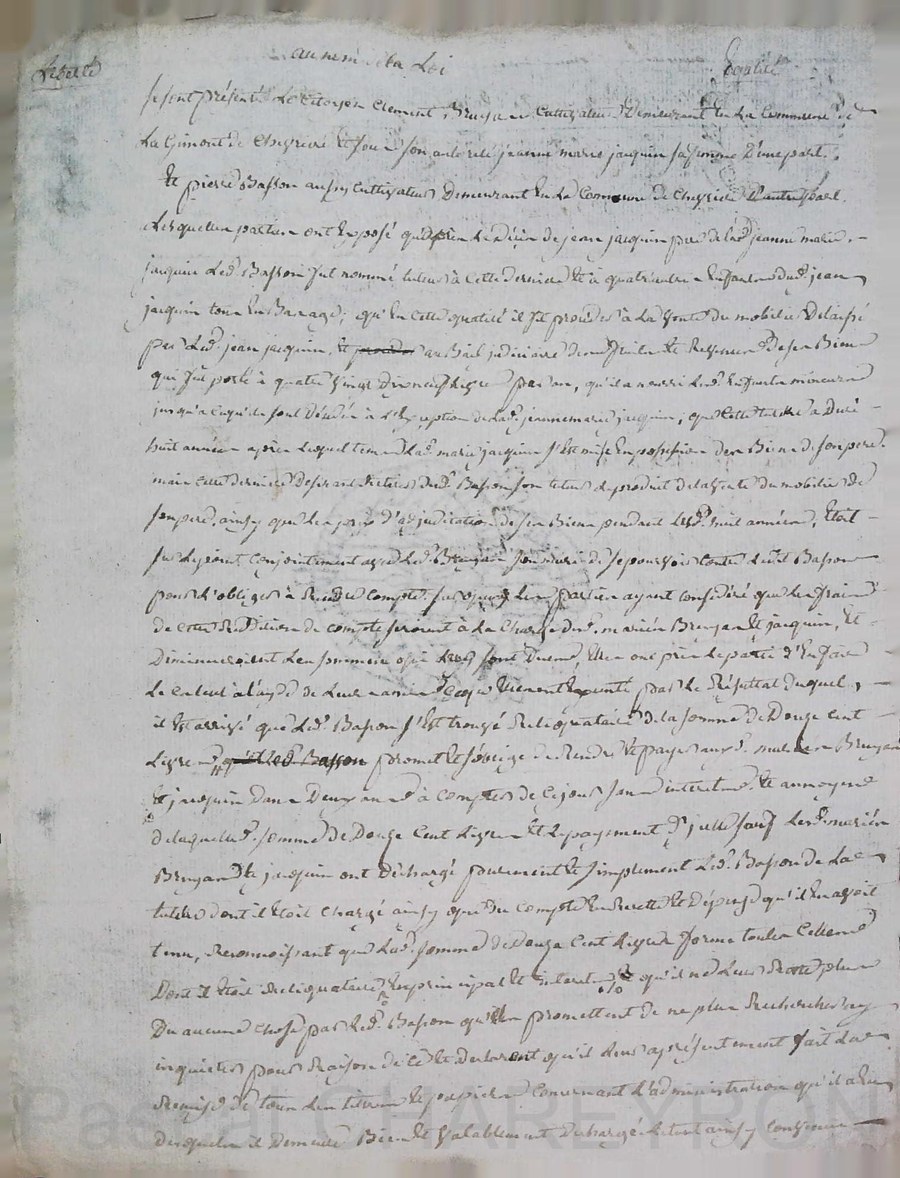 Liberté au nom de la Loi Egalité
se sont présenté Le Citoyen Clement Bruyan Cultivateur Demeurant En La Commune de
La Gimond de Chevrieu Et sou son autorité jeanne marie jaquin sa femme D'une part.
Et pierre Basson aussy Cultivateur Demeurant En La Commune de Chevrieu D'autre part.
Lesquelles parties ont Exposé qu'apres Le décéz de jean jacquin pere de lad. jeanne marie
jacquin Led. Basson fut nommé tuteur à cette derniere Et à quatre autres Enfants dud. jean
jacquin tous En Bas age; qu'En cette qualité il fit procéder à La vente du mobilier Délaissé
par Led. jean jacquin, Et au Bail judiciaire des fruits Et Revenus De ses Biens
qui fut porté à quatre vingt Dix neuf Livres par an, qu'il a nourri Led. Enfants mineurs
jusqu'a ce qu'ils sont Décédés à L'Exception de Lad. jeanne marie jacquin, que cette tutelle a Duré
huit années après Lequel tems Lad. marie jacquin s'Est mise En possession des Biens de son pere.
mais cette derniere desirant Retirer dud. Basson son tuteur Le produit de la vente du mobilier De
son pere, ainsy que Le prix d'adjudication De ses Biens pendant Lesd. huit années, Etoit
sur Le point Conjointement avec Led. Bruyan son mari de se pourvoir Contre Ledit Basson
pour L'obliger à Rendre Compte. sur quoy Les parties ayant Considéré que Les fraix
de cette Reddition de compte seroient à La Charge dud. mariés Bruyan Et jacquin, Et
Diminueroient Les sommes qui Leur sont Dues, Elles ont pris Le parti d'En faire
Le calcul à l'ayde de Leurs amis par Le Résultat Duquel,
il Est arrivé que Led. Basson s'Est trouvé Reliquataire de la somme de Douze Cent
Livres promet Et s'oblige de Rendre Et payer aux d. mariés Bruyan
Et jacquin Dans Deux ans à Compter de Ce jour sans interets. Et au moyen
de laquelle d. somme de Douze Cent Livres Et Le payement D'icelle fait Lesd. mariés
Bruyan Et jacquin ont Déchargé purement Et simplement Led. Basson de La
tutelle dont il étoit Chargé ainsy que du Compte En Recette Et Dépense qu'il En avoit
tenu, Reconnoissant que Lad. somme de Douze Cent Livres forme toutes Celles
Dont il Etoit Reliquataire En principal Et Interets Et qu'il ne Leur Reste plus
Du aucune chose par Led. Basson qu'ils promettent de ne plus Rechercher ny
inquieter pour Raison de Ce Et declarent qu'il Leur a présentement fait La
Remise de tous Les titres Et papiers Concernant L'administration qu'il a Eu
desquels il Demeure Bien Et valablement Déchargé
Pascal CHAREYRON